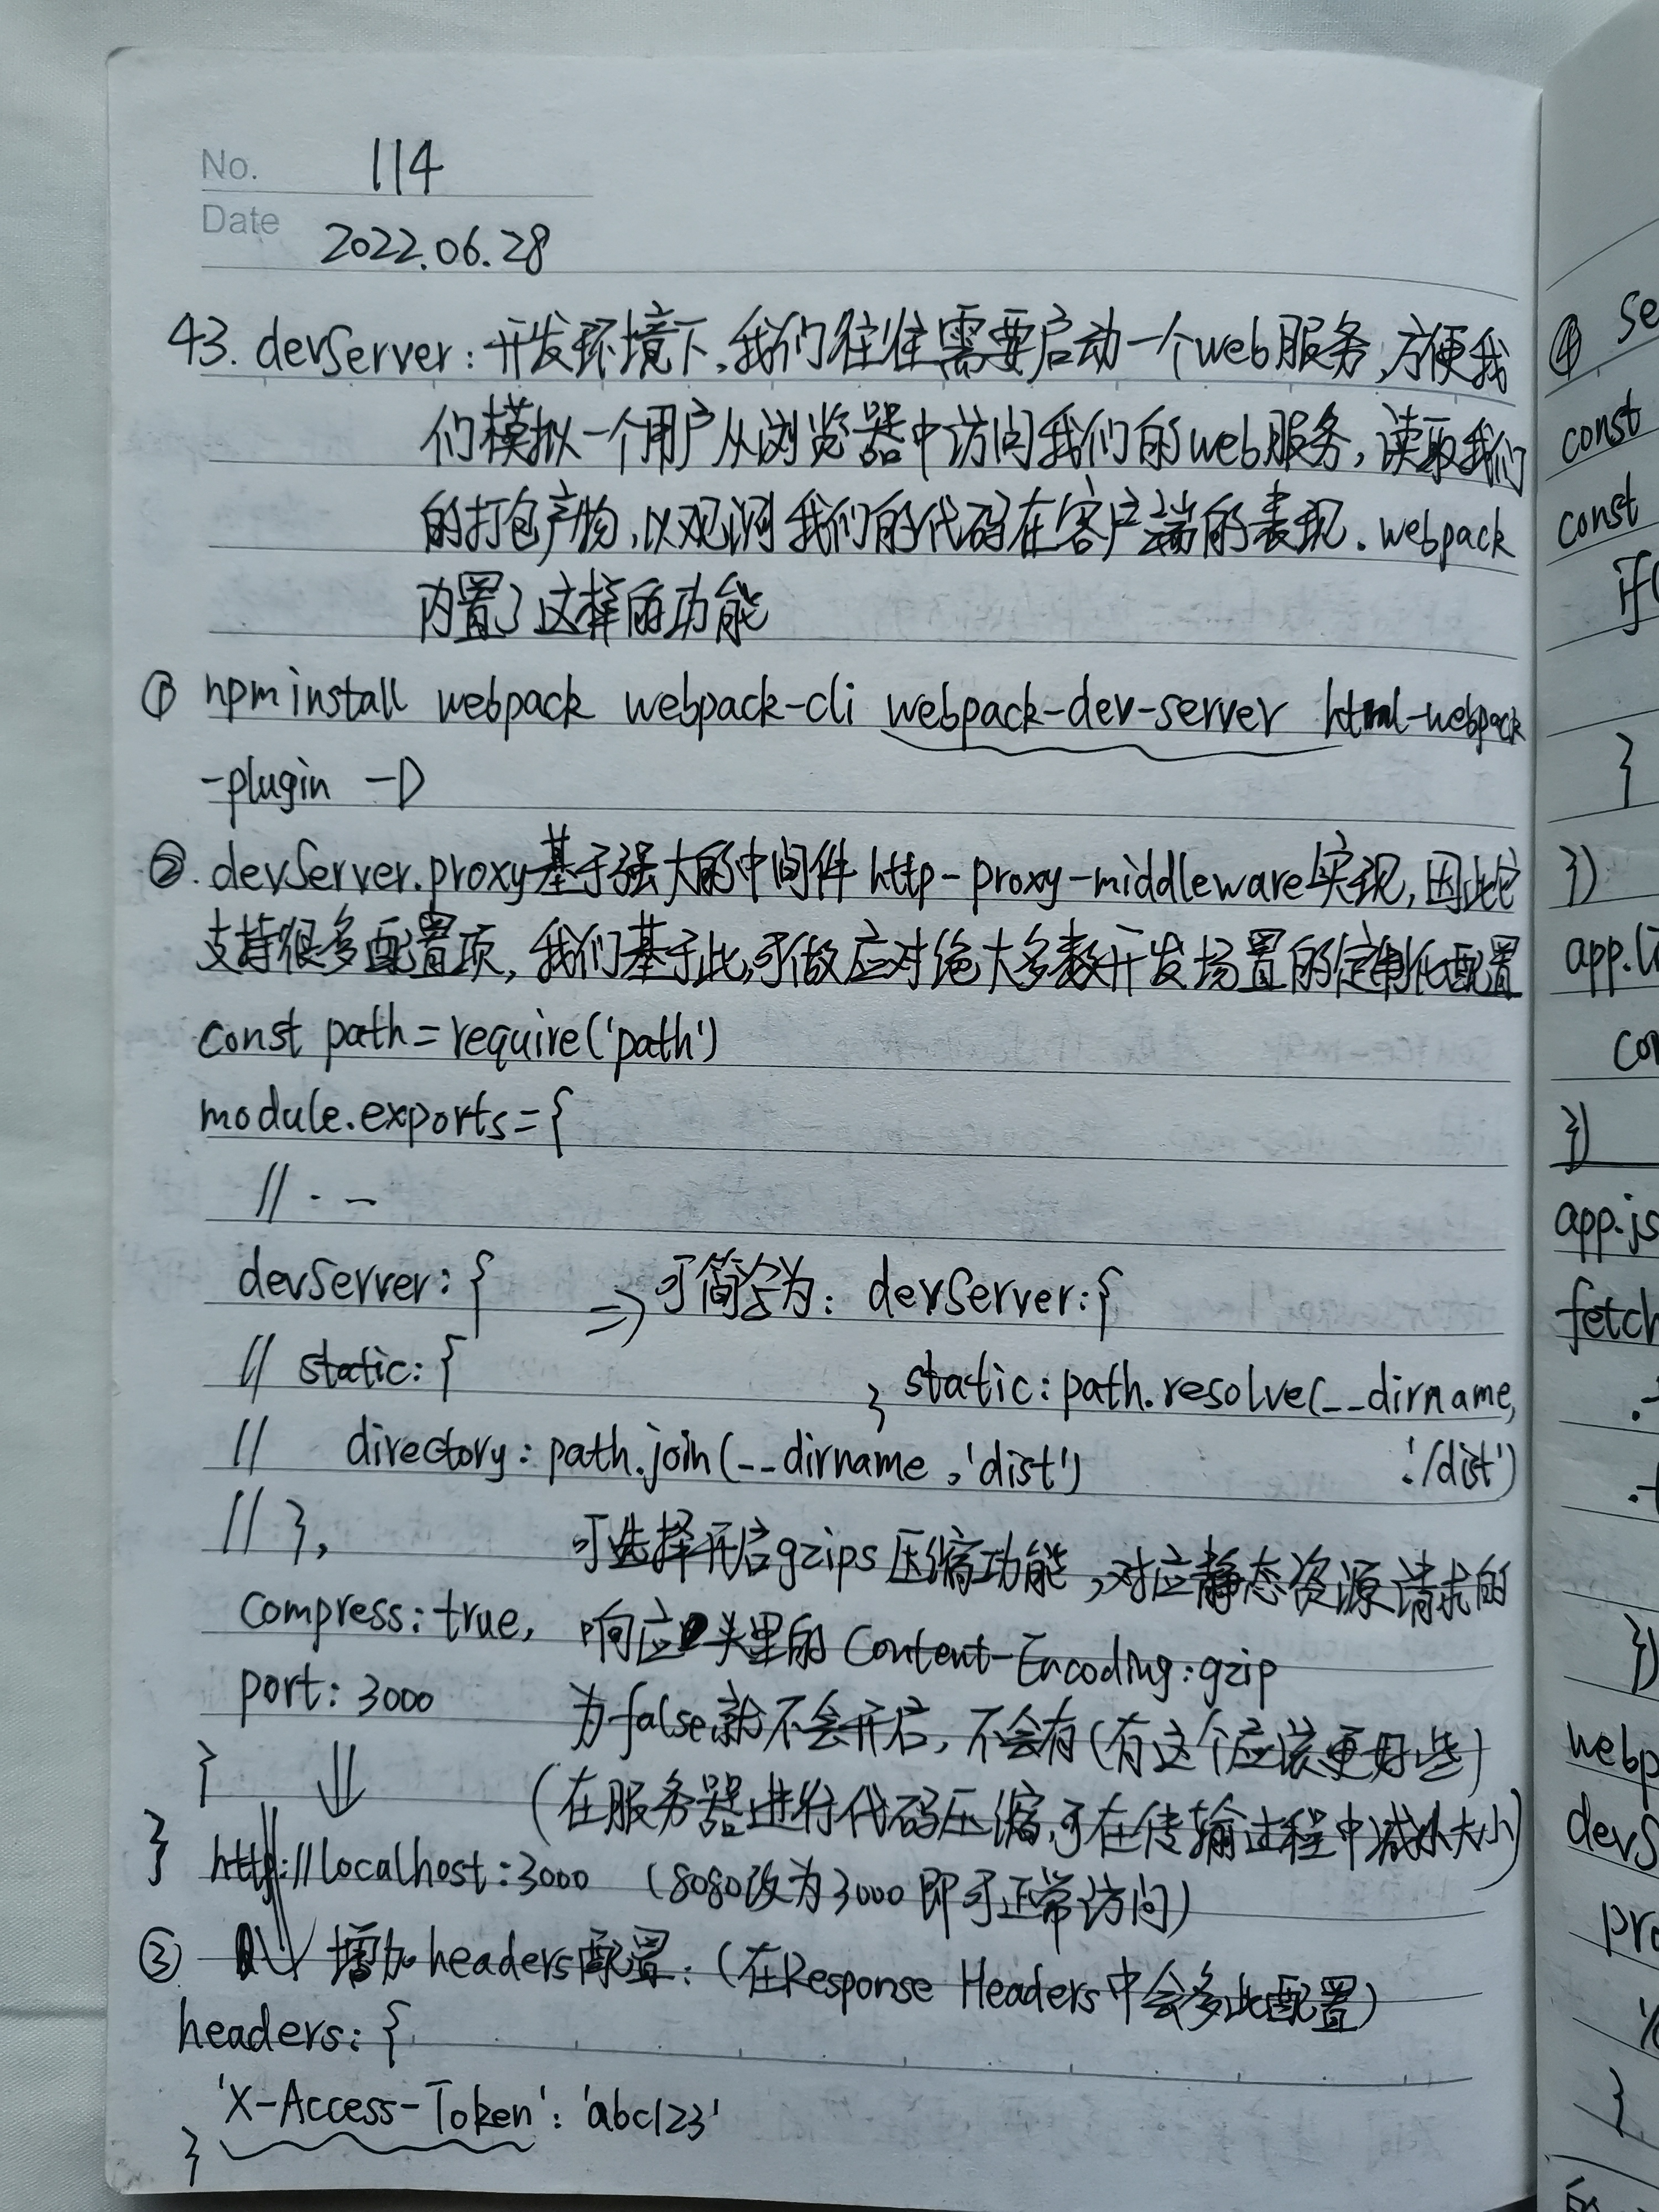 No. 114
Date 2022.06.28
43. devServer:开发环境下,我们往往需要启动一个web服务,方便我
们模拟一个用户从浏览器中访问我们的web服务,读取我们
的打包产物,以观测我们的代码在客户端的表现.webpack
内置了这样的功能
① npm install webpack webpack-cli webpack-dev-server html-webpack
-plugin -D
②.devServer.proxy基于强大的中间件http-proxy-middleware实现,因此它
支持很多配置项,我们基于此,可做应对绝大多数开发场置的定制化配置
const path=require('path')
module.exports={
//...
devServer:{ => 可简写为: devServer:{
// static:{ } static:path.resolve(__dirname,
// directory:path.join(__dirname,'dist') './dist')
// }, 可选择开启gzips压缩功能,对应静态资源请求的
compress:true, 响应头里的Content-Encoding:gzip
port:3000 为false就不会开启,不会有(有这个应该更好些)
} ⇓ (在服务器进行代码压缩,可在传输过程中减小大小)
} http://localhost:3000 (8080改为3000即可正常访问)
③ 增加headers配置:(在Response Headers中会多此配置)
headers:{
'X-Access-Token':'abc123'
}
④ se
const
const
if(
}
})
app.li
con
})
app.js
fetch
})
webp
devS
pro
}
的